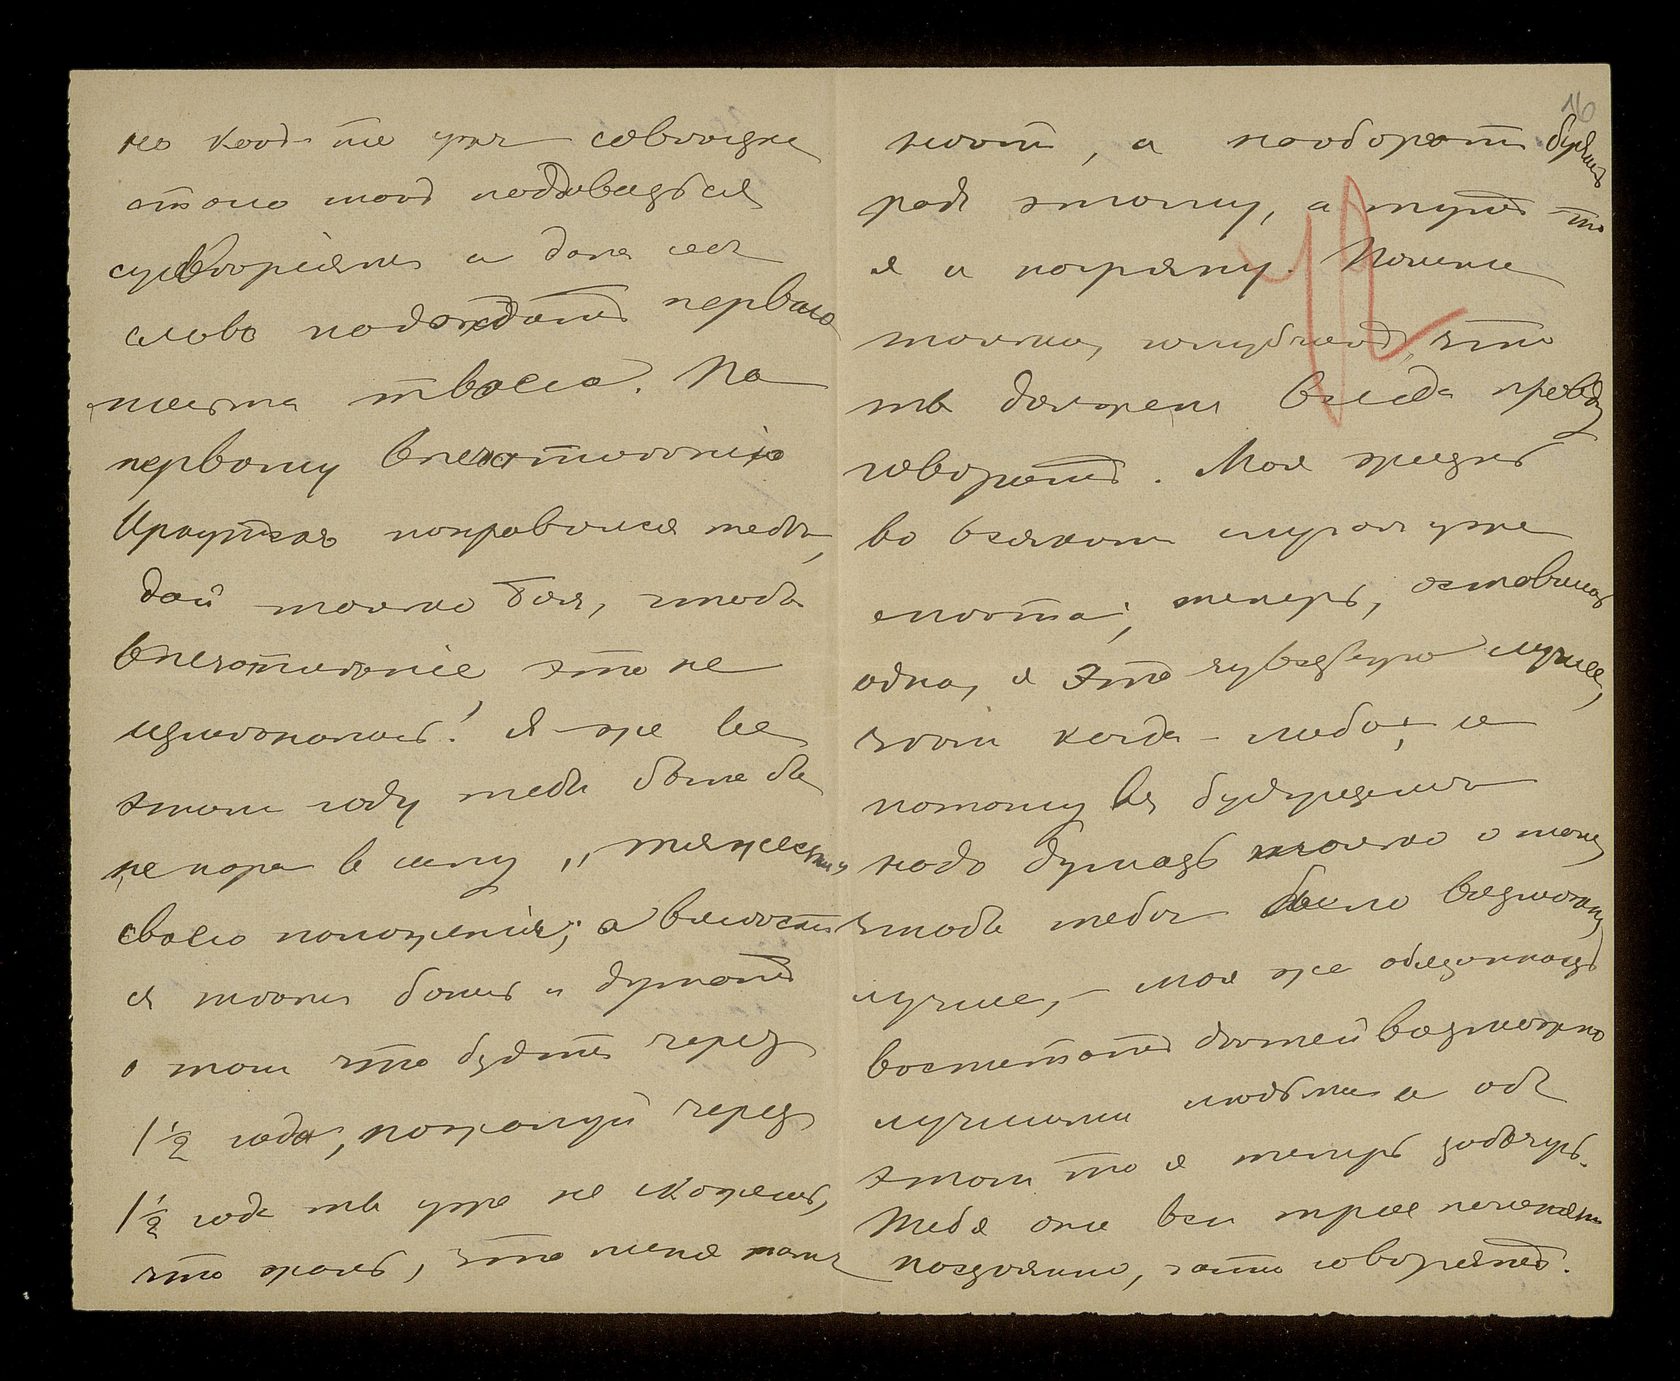 но
стало
суевѣріямъ и дала себѣ
слово подождать первого
письма твоего. По
первому впечатлѣнію
Иркутскъ понравился тебѣ,
дай только Богъ, чтобы
впечатлѣніе это не
измѣнилось! Я же въ
этомъ году тебѣ было бы
не пора въ силу „тяжести"
своего положенія; а вмѣстѣ съ
тѣмъ больно и думать
о томъ что будетъ черезъ
1½ года, пожалуй черезъ
1½ года ты уже не скажешь,
что жаль, что меня тамъ
нѣтъ, а наоборотъ будешь
радъ этому, а тутъ то
я и нагряну. Помни
только, голубчикъ, что
ты долженъ всегда правду
говорить. Моя жизнь
во всякомъ случаѣ уже
спѣта; теперь, оставшись
одна, я это чувствую лучше,
чѣмъ когда-либо; и
потому въ будущемъ
надо думать только о томъ,
чтобы тебѣ было возможно
лучше, – моя же обязанность
воспитать дѣтей возможно
лучшими людьми и объ
этомъ то я теперь забочусь.
Тебя они всѣ трое
поздравляю, часто говорятъ.